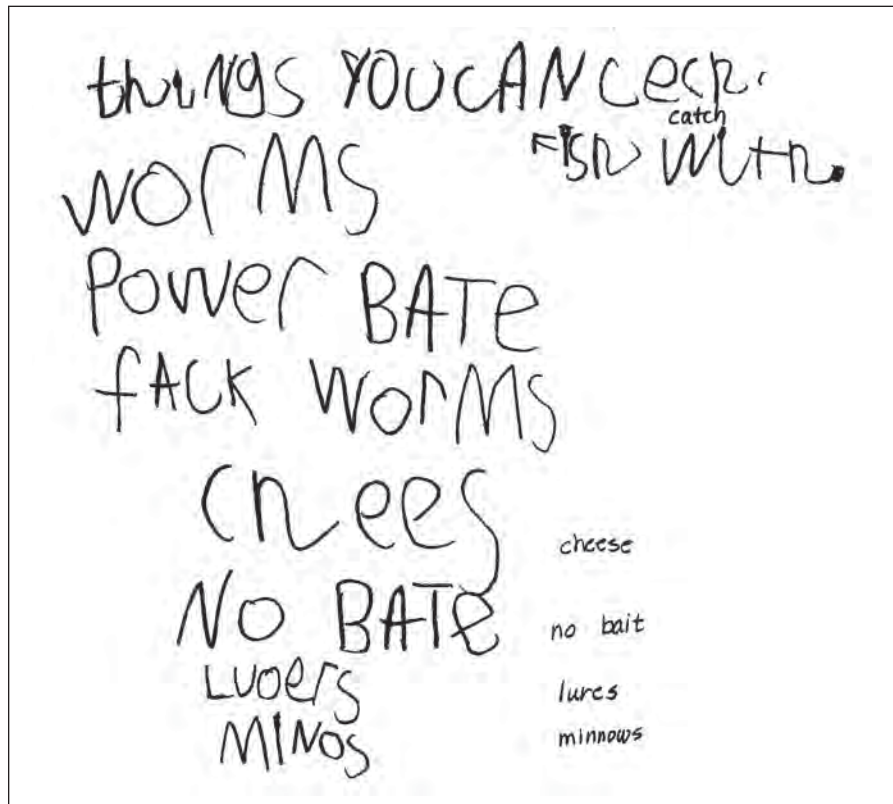 thiNgS YOU CAN cech
catch
Fish with.
worMS
Power BATe
fACK WorMS
chees
cheese
NO BATe
no bait
LUOerS
lures
MINoS
minnows